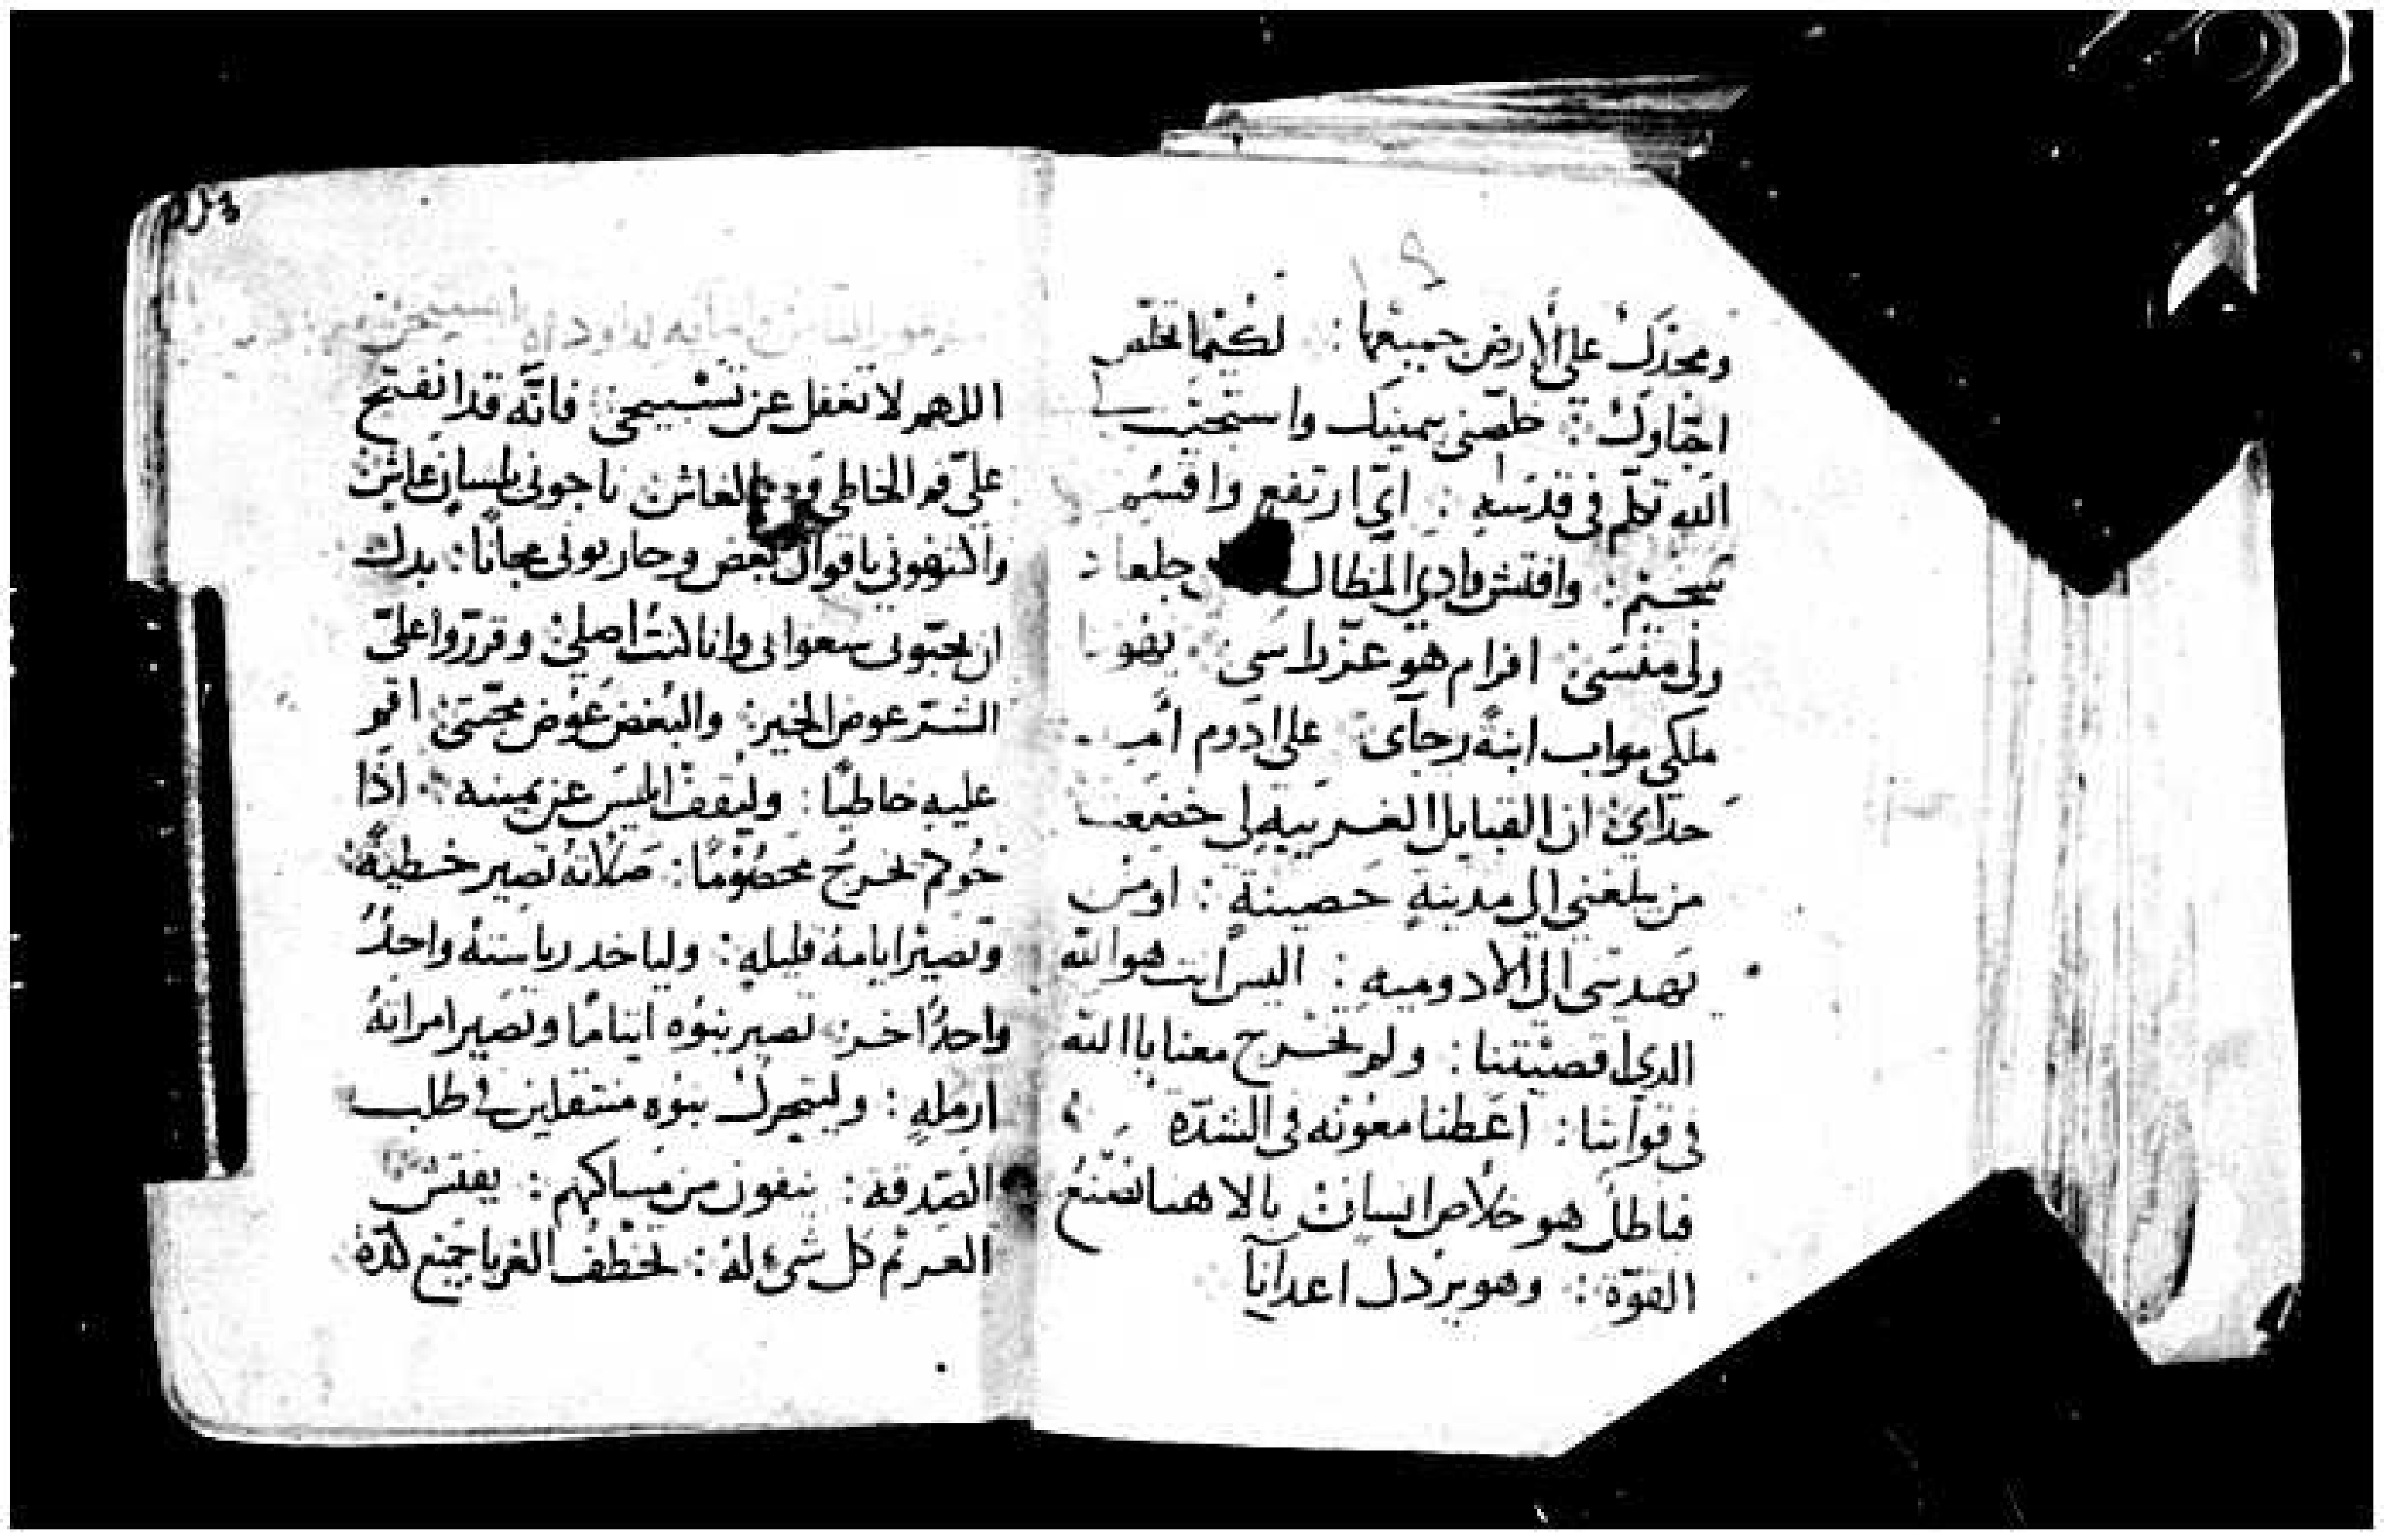 ومجدَك على الارض جميعها : لكيما تخلص
احباوك : خلصني بيمينك واستجب لي
الله تكلم في قدسه : اني ارتفع واقسم
شخيم : وافتش وادي المظال جلعاد
ولي منسى : افرام هو عز راسي : يهودا
ملكي مواب ابنة رجاي على ادوم امد
حذاي : ان القبايل الغريبه لي خضعت
من يبلغني الى مدينةٍ حصينة : او من
يهديني الى الادوميه : اليس انت هو الله
الدي اقصيتنا : ولم تخرج معنا يا الله
في قواتنا : اعطنا معونه في الشدّه
فباطل هو خلاص انسان بالاهنا نصنع
القوّة : وهو يرذل اعدآنا
اللهم لا تغفل عن تسبيحي : فانّه قد انفتح
علي فم الخاطي وفم الغاش : ناجوني بلسان غاش
واكتنفوني باقوال بغض وحاربوني مجانًا : بدل
ان يحبّوني سعوا بي وانا كنت اصلي : وقرّروا عليّ
الشر عوض الخير : والبغض عوض محبتي : اقم
عليه خاطيًا : وليقف ابليس عن يمينه : اذا
حُوكم يخرج مخصومًا : صلاته تصير خطيةً :
وتصير ايامهُ قليلهٍ : ولياخد رياستهُ واحدٌ
واحدٌ اخر : تصير بنوه ايتامًا وتصير امراتهُ
ارملهٍ : وليتحرك بنوه منتقلين في طلب
الصّدقة : ينفون من مساكنهم : يفتش
الغريم كل شيء لهُ : تخطف الغربا جميع كدّه